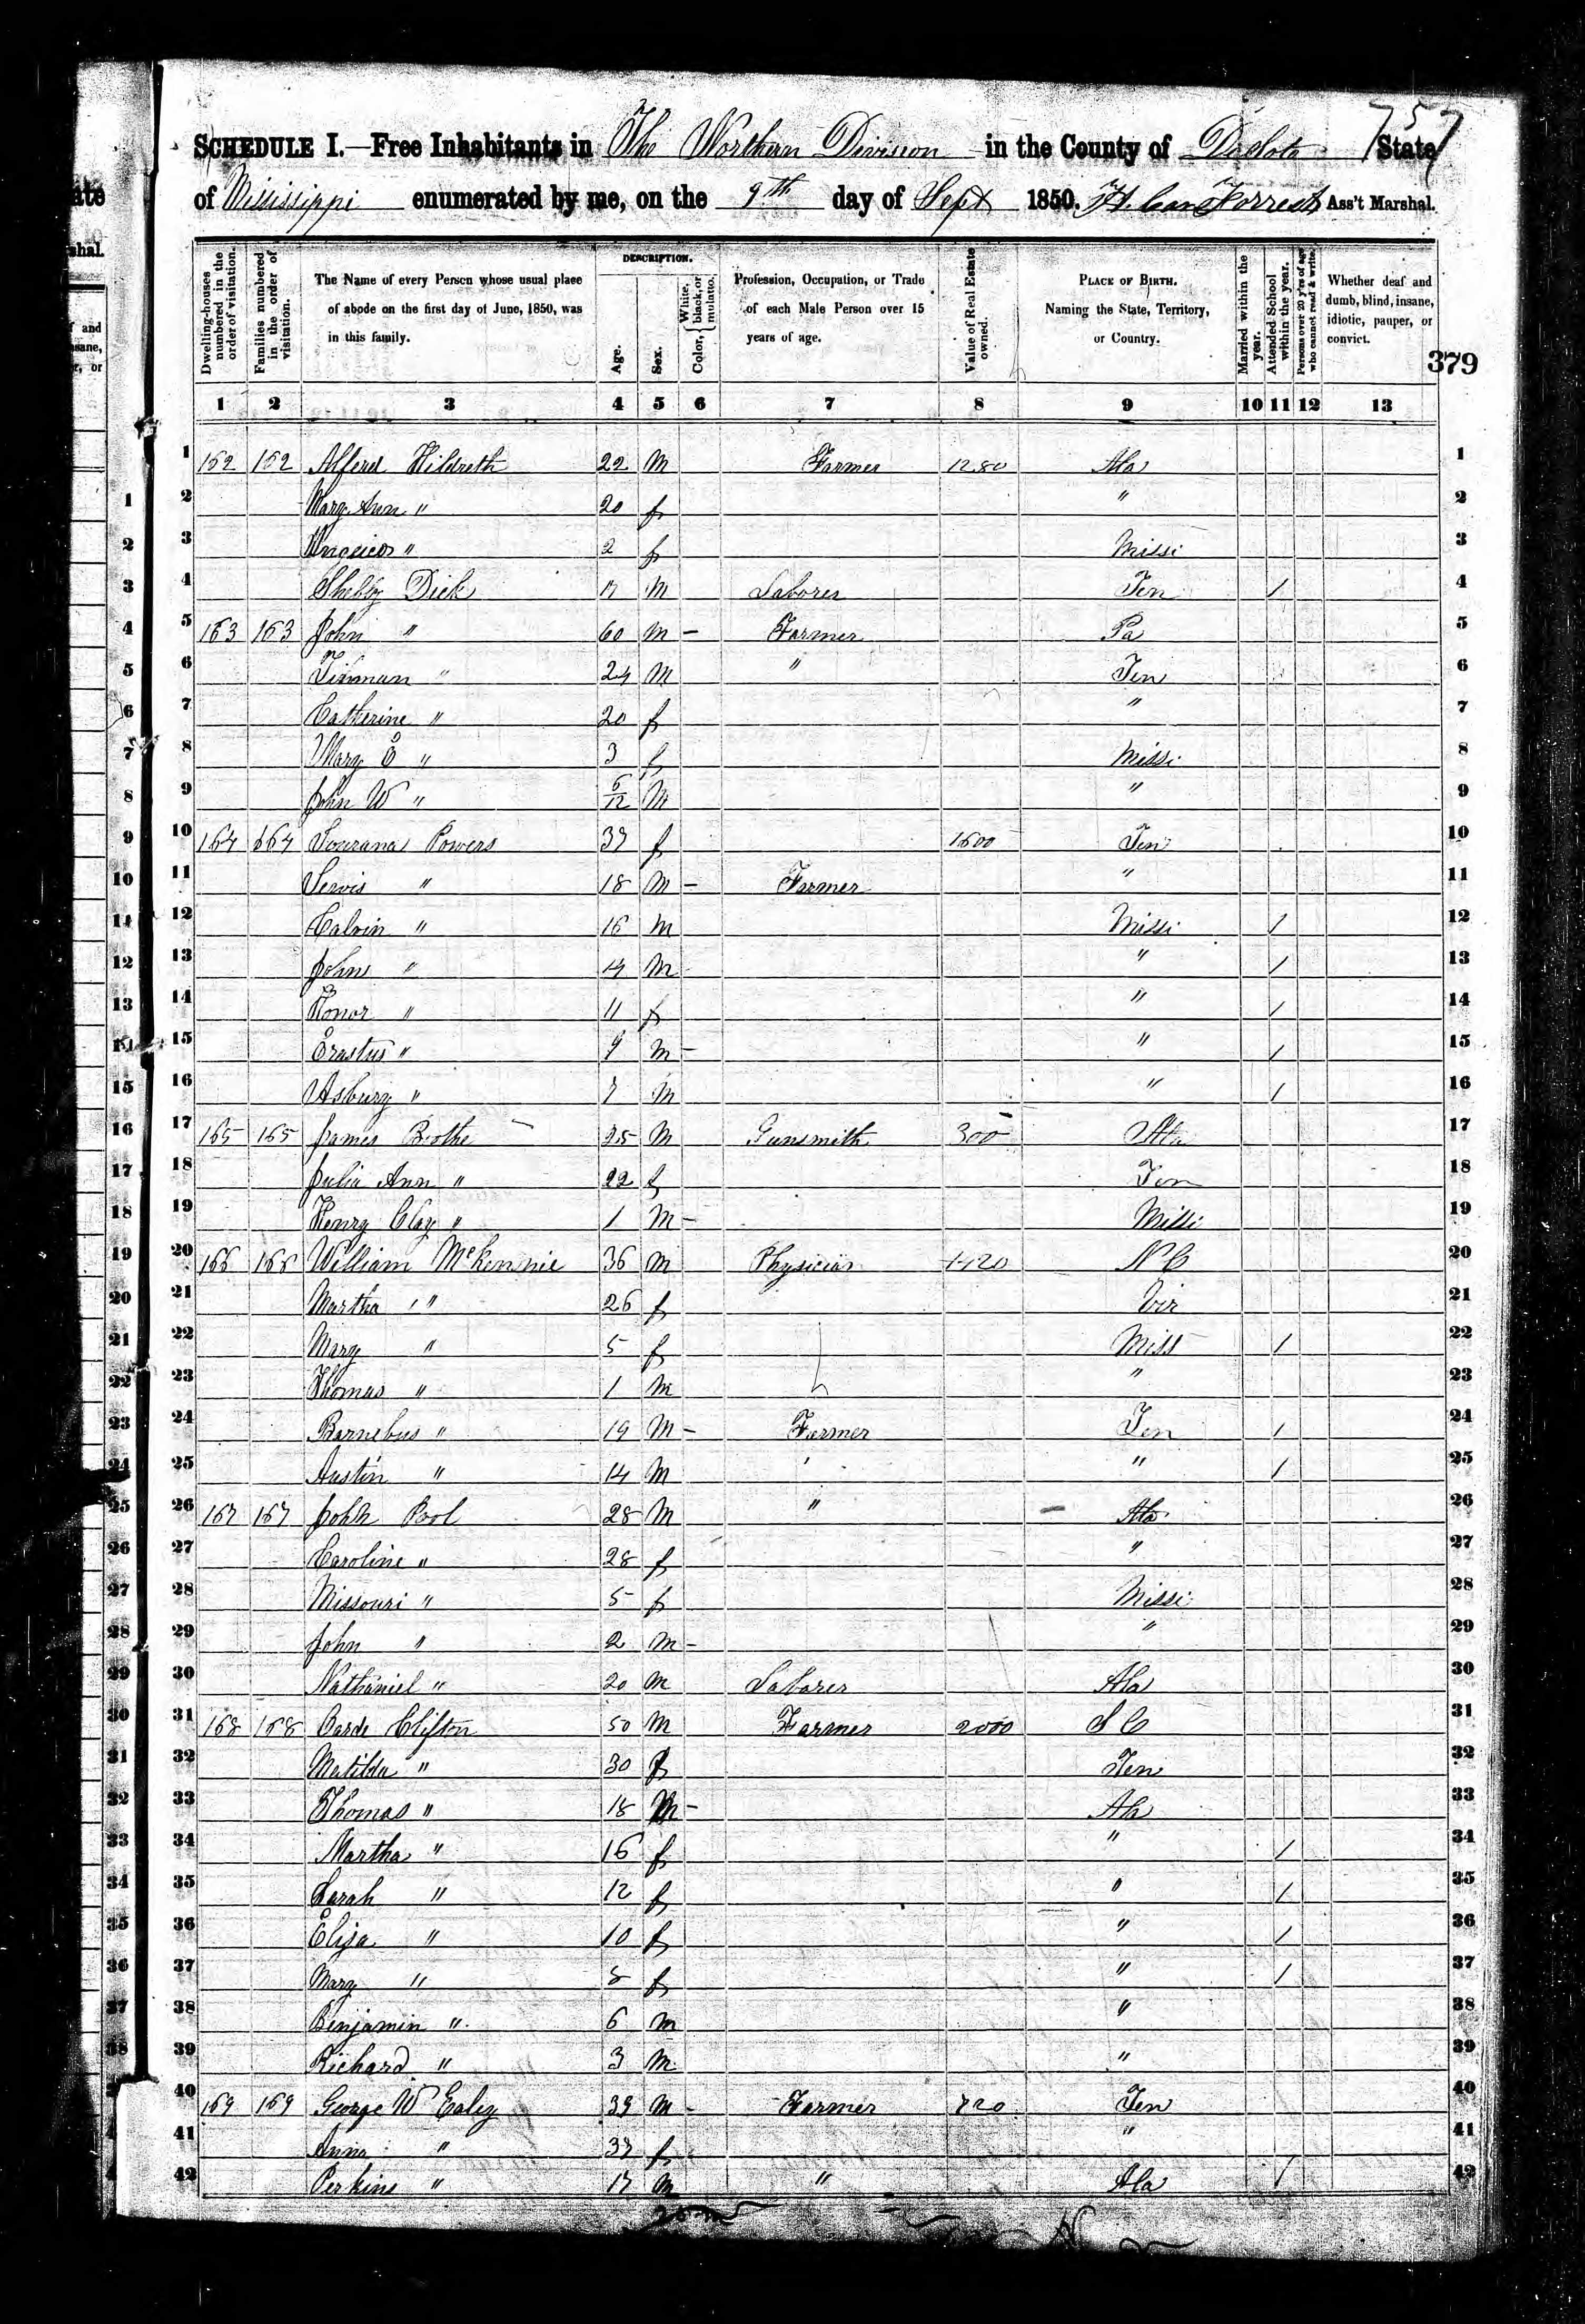 757
SCHEDULE I.—Free Inhabitants in The Northern Division in the County of Desoto State
of Mississippi enumerated by me, on the 9th day of Sept 1850. Forrest Ass't Marshal.
DESCRIPTION.
Dwelling-houses numbered in the order of visitation.
Families numbered in the order of visitation.
The Name of every Person whose usual place of abode on the first day of June, 1850, was in this family.
Age.
Sex.
Color, { White, black, or mulatto.
Profession, Occupation, or Trade of each Male Person over 15 years of age.
Value of Real Estate owned.
PLACE OF BIRTH. Naming the State, Territory, or Country.
Married within the year.
Attended School within the year.
Persons over 20 y'rs of age who cannot read & write.
Whether deaf and dumb, blind, insane, idiotic, pauper, or convict.
379
1 2 3 4 5 6 7 8 9 10 11 12 13
1 162 162 Alfred Hildreth 22 M Farmer 1280 Ala 1
2 Mary Ann " 20 f " 2
3 " 2 f Missi 3
4 Shelby Dick 17 M Laborer Ten / 4
5 163 163 John " 60 M – Farmer Pa 5
6 Tinman " 24 M " Ten 6
7 Catherine " 20 f " 7
8 Mary E " 3 f Missi 8
9 John W " 6/12 M " 9
10 164 164 Powers 37 f 1600 Ten 10
11 " 18 M – Farmer " 11
12 Calvin " 16 M Missi / 12
13 John " 14 M " / 13
14 Honor " 11 f " / 14
15 Erastus " 9 M – " / 15
16 Asbury " 7 M " / 16
17 165 165 James Boothe 25 M Gunsmith 300 Ala 17
18 Julia Ann " 22 f Ten 18
19 Henry Clay " 1 M – Missi 19
20 166 166 William McKennie 36 M Physician 1120 N C 20
21 Martha " 26 f Vir 21
22 Mary " 5 f Miss / 22
23 Thomas " 1 M " 23
24 Barnebus " 19 M – Farmer Ten / 24
25 Austin " 14 M " / 25
26 167 167 John Pool 28 M " Ala 26
27 Caroline " 28 f " 27
28 Missouri " 5 f Missi 28
29 John " 2 M – " 29
30 Nathaniel " 20 M Laborer Ala 30
31 168 168 Clifton 50 M Farmer 2000 S C 31
32 Matilda " 30 f Ten 32
33 Thomas " 18 M – Ala 33
34 Martha " 16 f " / 34
35 Sarah " 12 f " / 35
36 Eliza " 10 f " / 36
37 Mary " 8 f " / 37
38 Benjamin " 6 M " 38
39 Richard " 3 M " 39
40 169 169 George W Ealey 39 M – Farmer 720 Ten 40
41 Anna " 37 f " 41
42 Perkins " 17 M " Ala / 42